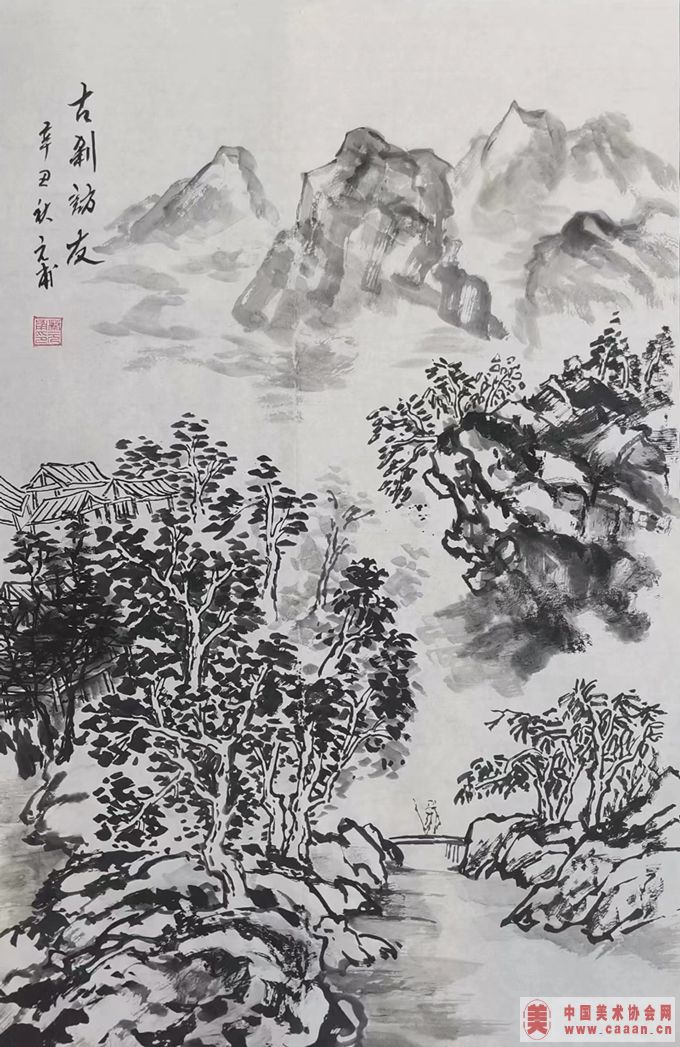 古刹訪友
辛丑秋元甫
美
中国美术协会网
www.caaan.cn